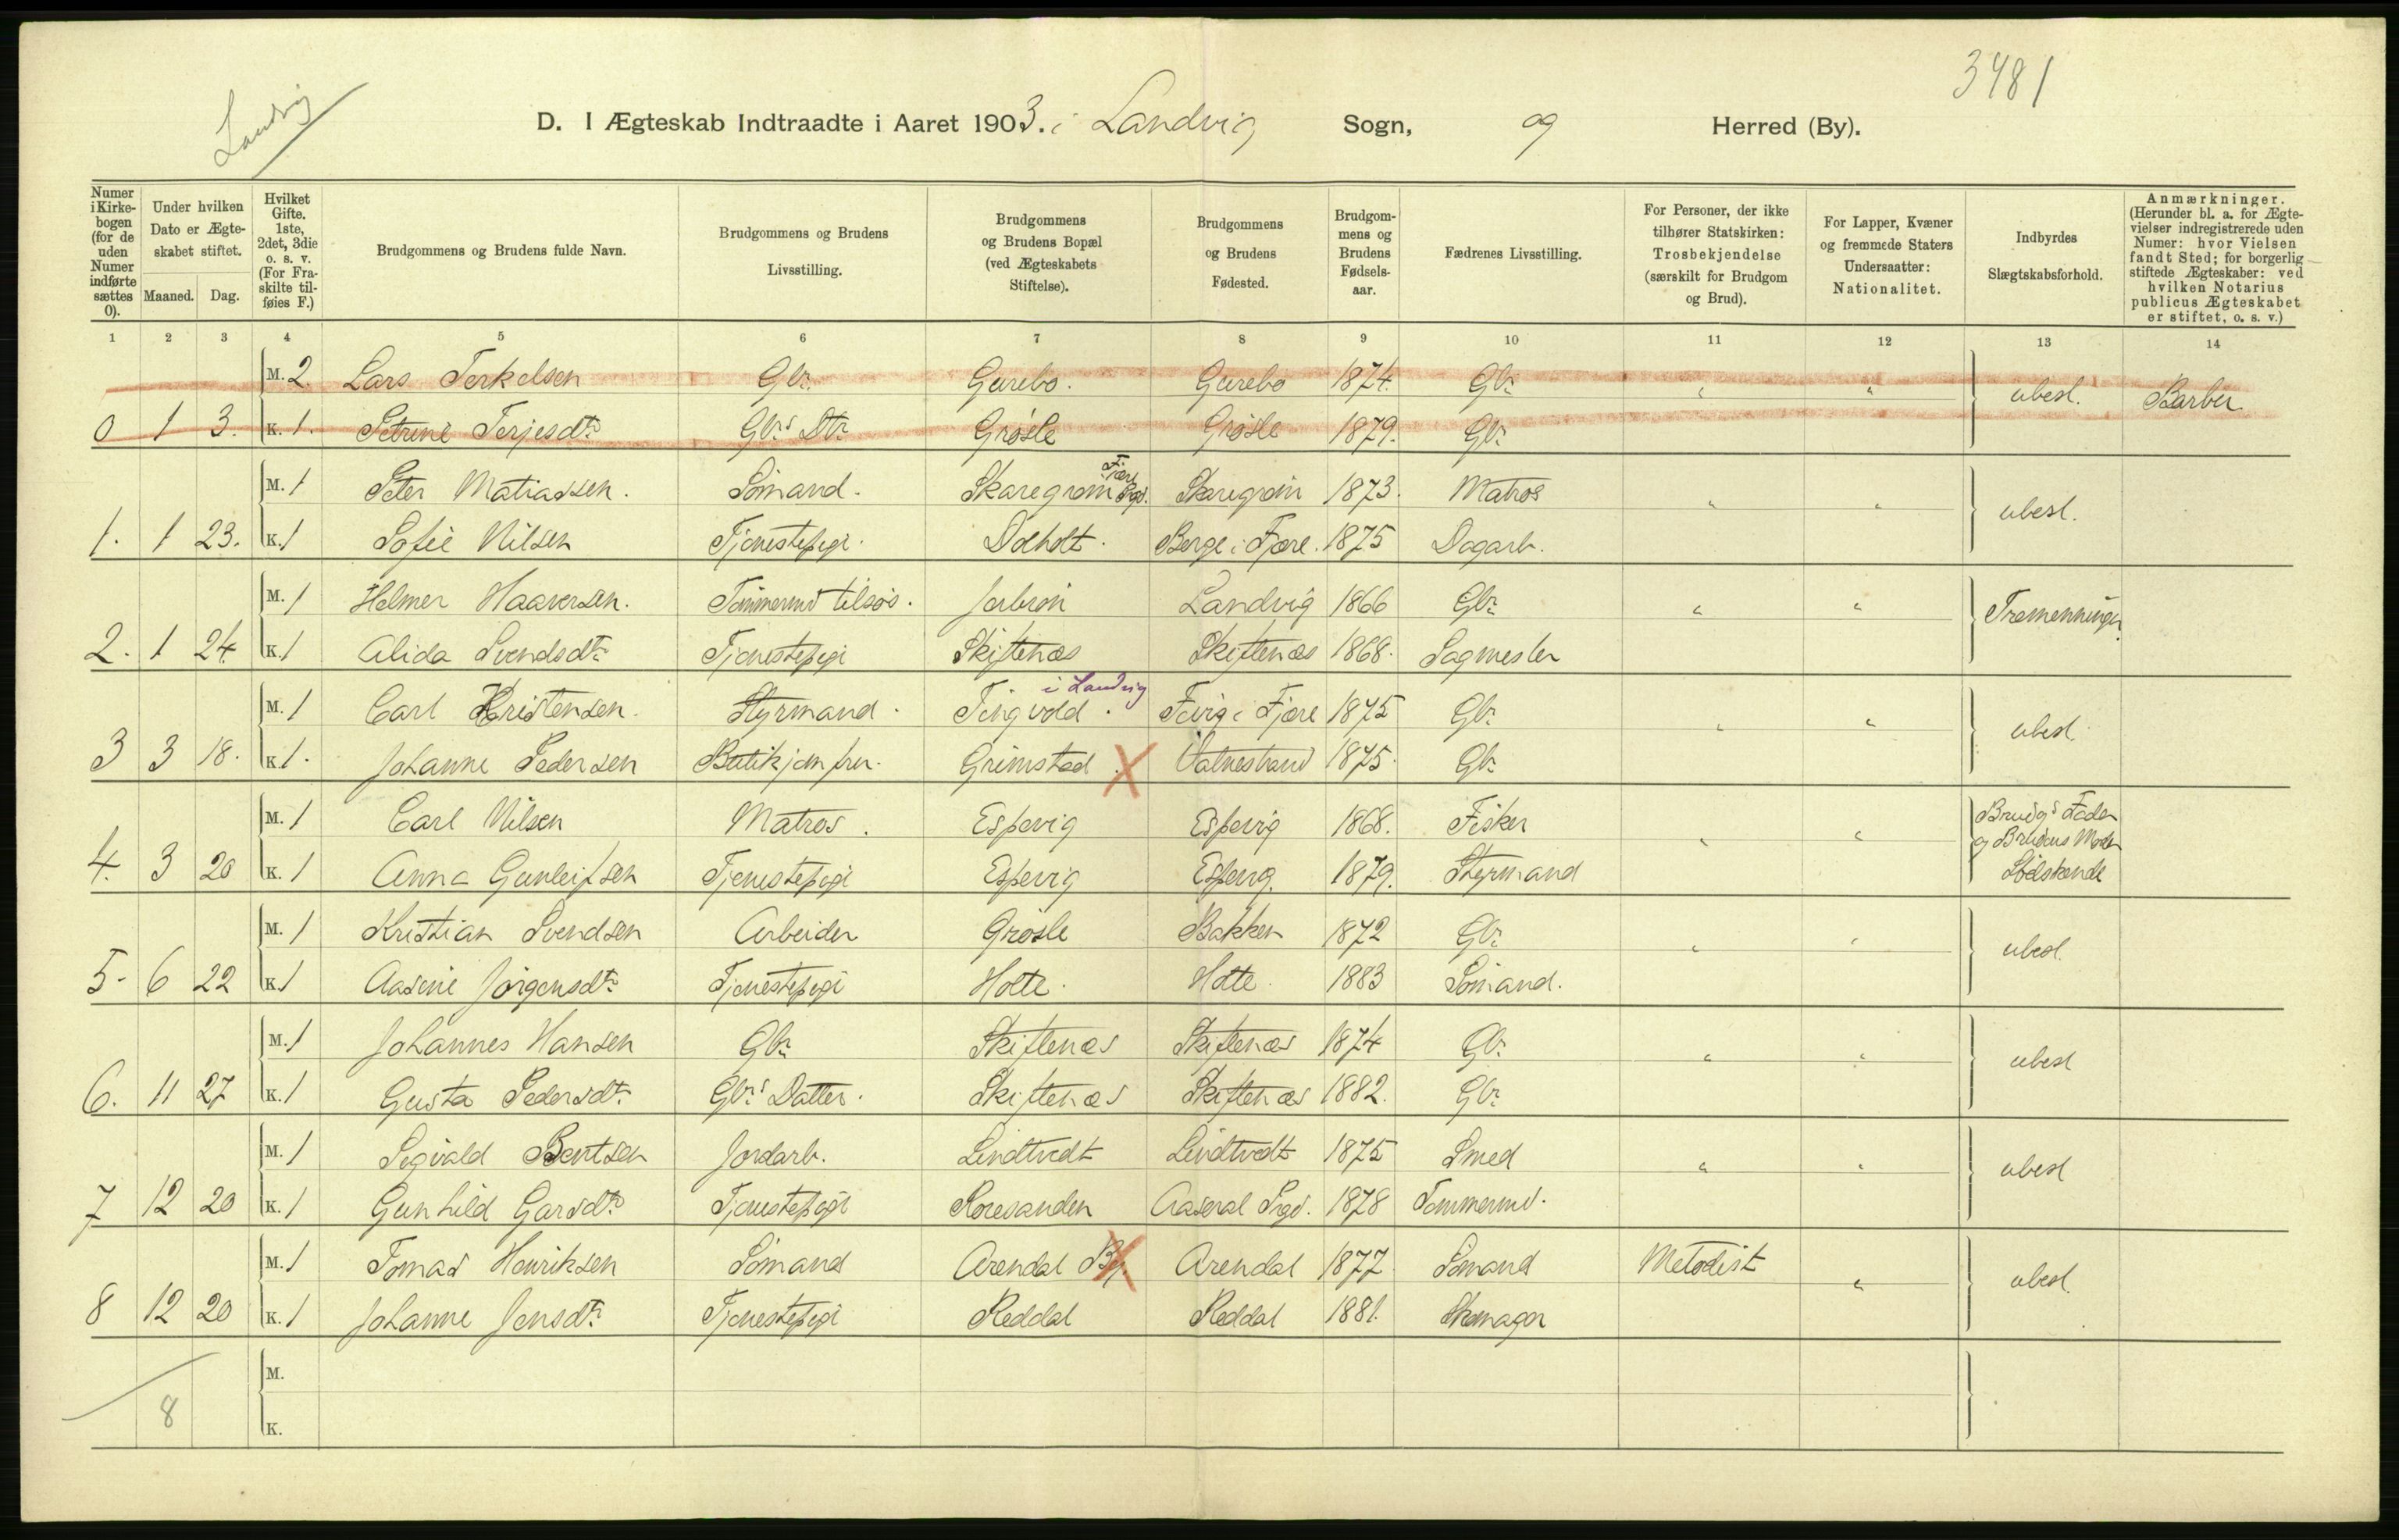 3481
Landvig
D. I Ægteskab Indtraadte i Aaret 1903. i Landvig Sogn, og Herred (By).
Numer i Kirkebogen (for de uden Numer indførte sættes 0).
Under hvilken Dato er Ægteskabet stiftet.
Maaned. Dag.
Hvilket Gifte. 1ste, 2det, 3die o. s. v. (For Fraskilte tilføies F.)
Brudgommens og Brudens fulde Navn.
Brudgommens og Brudens Livsstilling.
Brudgommens og Brudens Bopæl (ved Ægteskabets Stiftelse).
Brudgommens og Brudens Fødested.
Brudgommens og Brudens Fødselsaar.
Fædrenes Livsstilling.
For Personer, der ikke tilhører Statskirken: Trosbekjendelse (særskilt for Brudgom og Brud).
For Lapper, Kvæner og fremmede Staters Undersaatter: Nationalitet.
Indbyrdes Slægtskabsforhold.
Anmærkninger. (Herunder bl. a. for Ægtevielser indregistrerede uden Numer: hvor Vielsen fandt Sted; for borgerlig stiftede Ægteskaber: ved hvilken Notarius publicus Ægteskabet er stiftet, o. s. v.)
1 2 3 4 5 6 7 8 9 10 11 12 13 14
M. 2. Lars Terkelsen Gbr. Gurebo. Gurebo 1874. Gbr. " " ubesl. Barbu
0 1 3. K. 1. Petrine Terjesdtr. Gbr.s Dtr. Grøsle Grøsle 1879. Gbr.
M. 1 Peter Matiassen. Sømand. Skaregrøm Fjære Prgd. Skaregrøm 1873. Matros " " ubesl.
1. 1 23. K. 1 Sofie Nilsen Tjenestepige. Dolholt. Berge i Fjære. 1875 Dagarb.
M. 1 Helmer Haaversen. Tømmermd tilsøs. Landvig 1866 Gbr. " " Tremenninger
2. 1 24. K. 1 Alida Svendsdtr. Tjenestepige Skiftenæs Skiftenæs 1868. Sagmester
M. 1 Carl Kristensen. Styrmand. Tingvold. i Landvig Fevig i Fjære 1875 Gbr. " " ubesl.
3 3 18. K. 1. Johanne Pedersen Butikjomfru. Grimstad. X Valnestrand 1875. Gbr.
M. 1 Carl Nilsen Matros. Espevig Espevig 1868. Fisker " " Brudg.s Fader og Brudens Moder Sødskende
4. 3 20 K. 1 Anna Gunleifsen Tjenestepige Espevig Espevig. 1879. Styrmand
M. 1 Kristian Svendsen Arbeider Grøsle Bakken 1872 Gbr. " " ubesl.
5. 6 22 K. 1 Aasine Jørgensdtr. Tjenestepige Holte. Holte. 1883 Sømand.
M. 1 Johannes Hansen Gbr. Skiftenæs Skiftenæs 1874 Gbr. " " ubesl
6. 11 27 K. 1 Gusta Pedersdtr. Gbr.s Datter. Skiftenæs Skiftenæs 1882. Gbr.
M. 1 Sigvald Bentsen Jordarb. Lindtvedt Lindtvedt 1875 Smed " " ubesl
7 12 20 K. 1 Gunhild Garsdtr. Tjenestepige Roresanden Aaseral Prgd. 1878 Tømmermd.
M. 1 Tomas Henriksen Sømand Arendal By. X Arendal 1877 Sømand Metodist " ubesl.
8 12 20 K. 1 Johanne Jensdtr. Tjenestepige Reddal Reddal 1881. Skomager
M.
8 K.